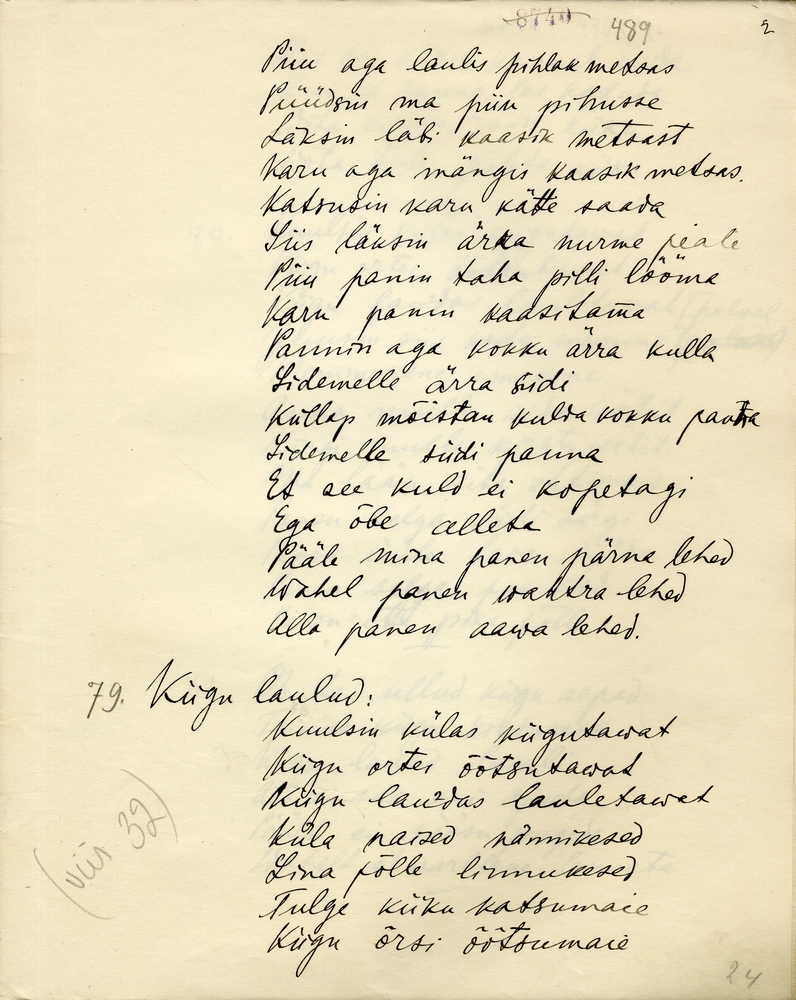 8740 489 2
Piiu aga laulis pihlak metsas
Püüdsin ma piiu pihusse
Läksin läbi kaasik metsast
Karu aga mängis kaasik metsas.
Katsusin karu kätte saada
Siis läksin ärka nurme peale
Piiu panin taha pilli lööma
Karu panin kaasitama
Pannin aga kokku ärra kulla
Sidemelle ärra siidi
Küllap mõistan kulda kokku panna
Sidemelle siidi panna
Et see kuld ei kopetagi
Ega õbe alleta
Pääle mina panen pärna lehed
Wahel panen wahtra lehed
Alla panen aawa lehed.
79. Kiigu laulud:
Kuulsin külas kiigutawat
Kiigu ortes õõtsutawat
Kiigu laudas lauletawat
Küla naised nännikesed
Lina põlle linnukesed
(viis 32)
Tulge kiiku katsumaie
Kiigu õrsi õõtsumaie
24